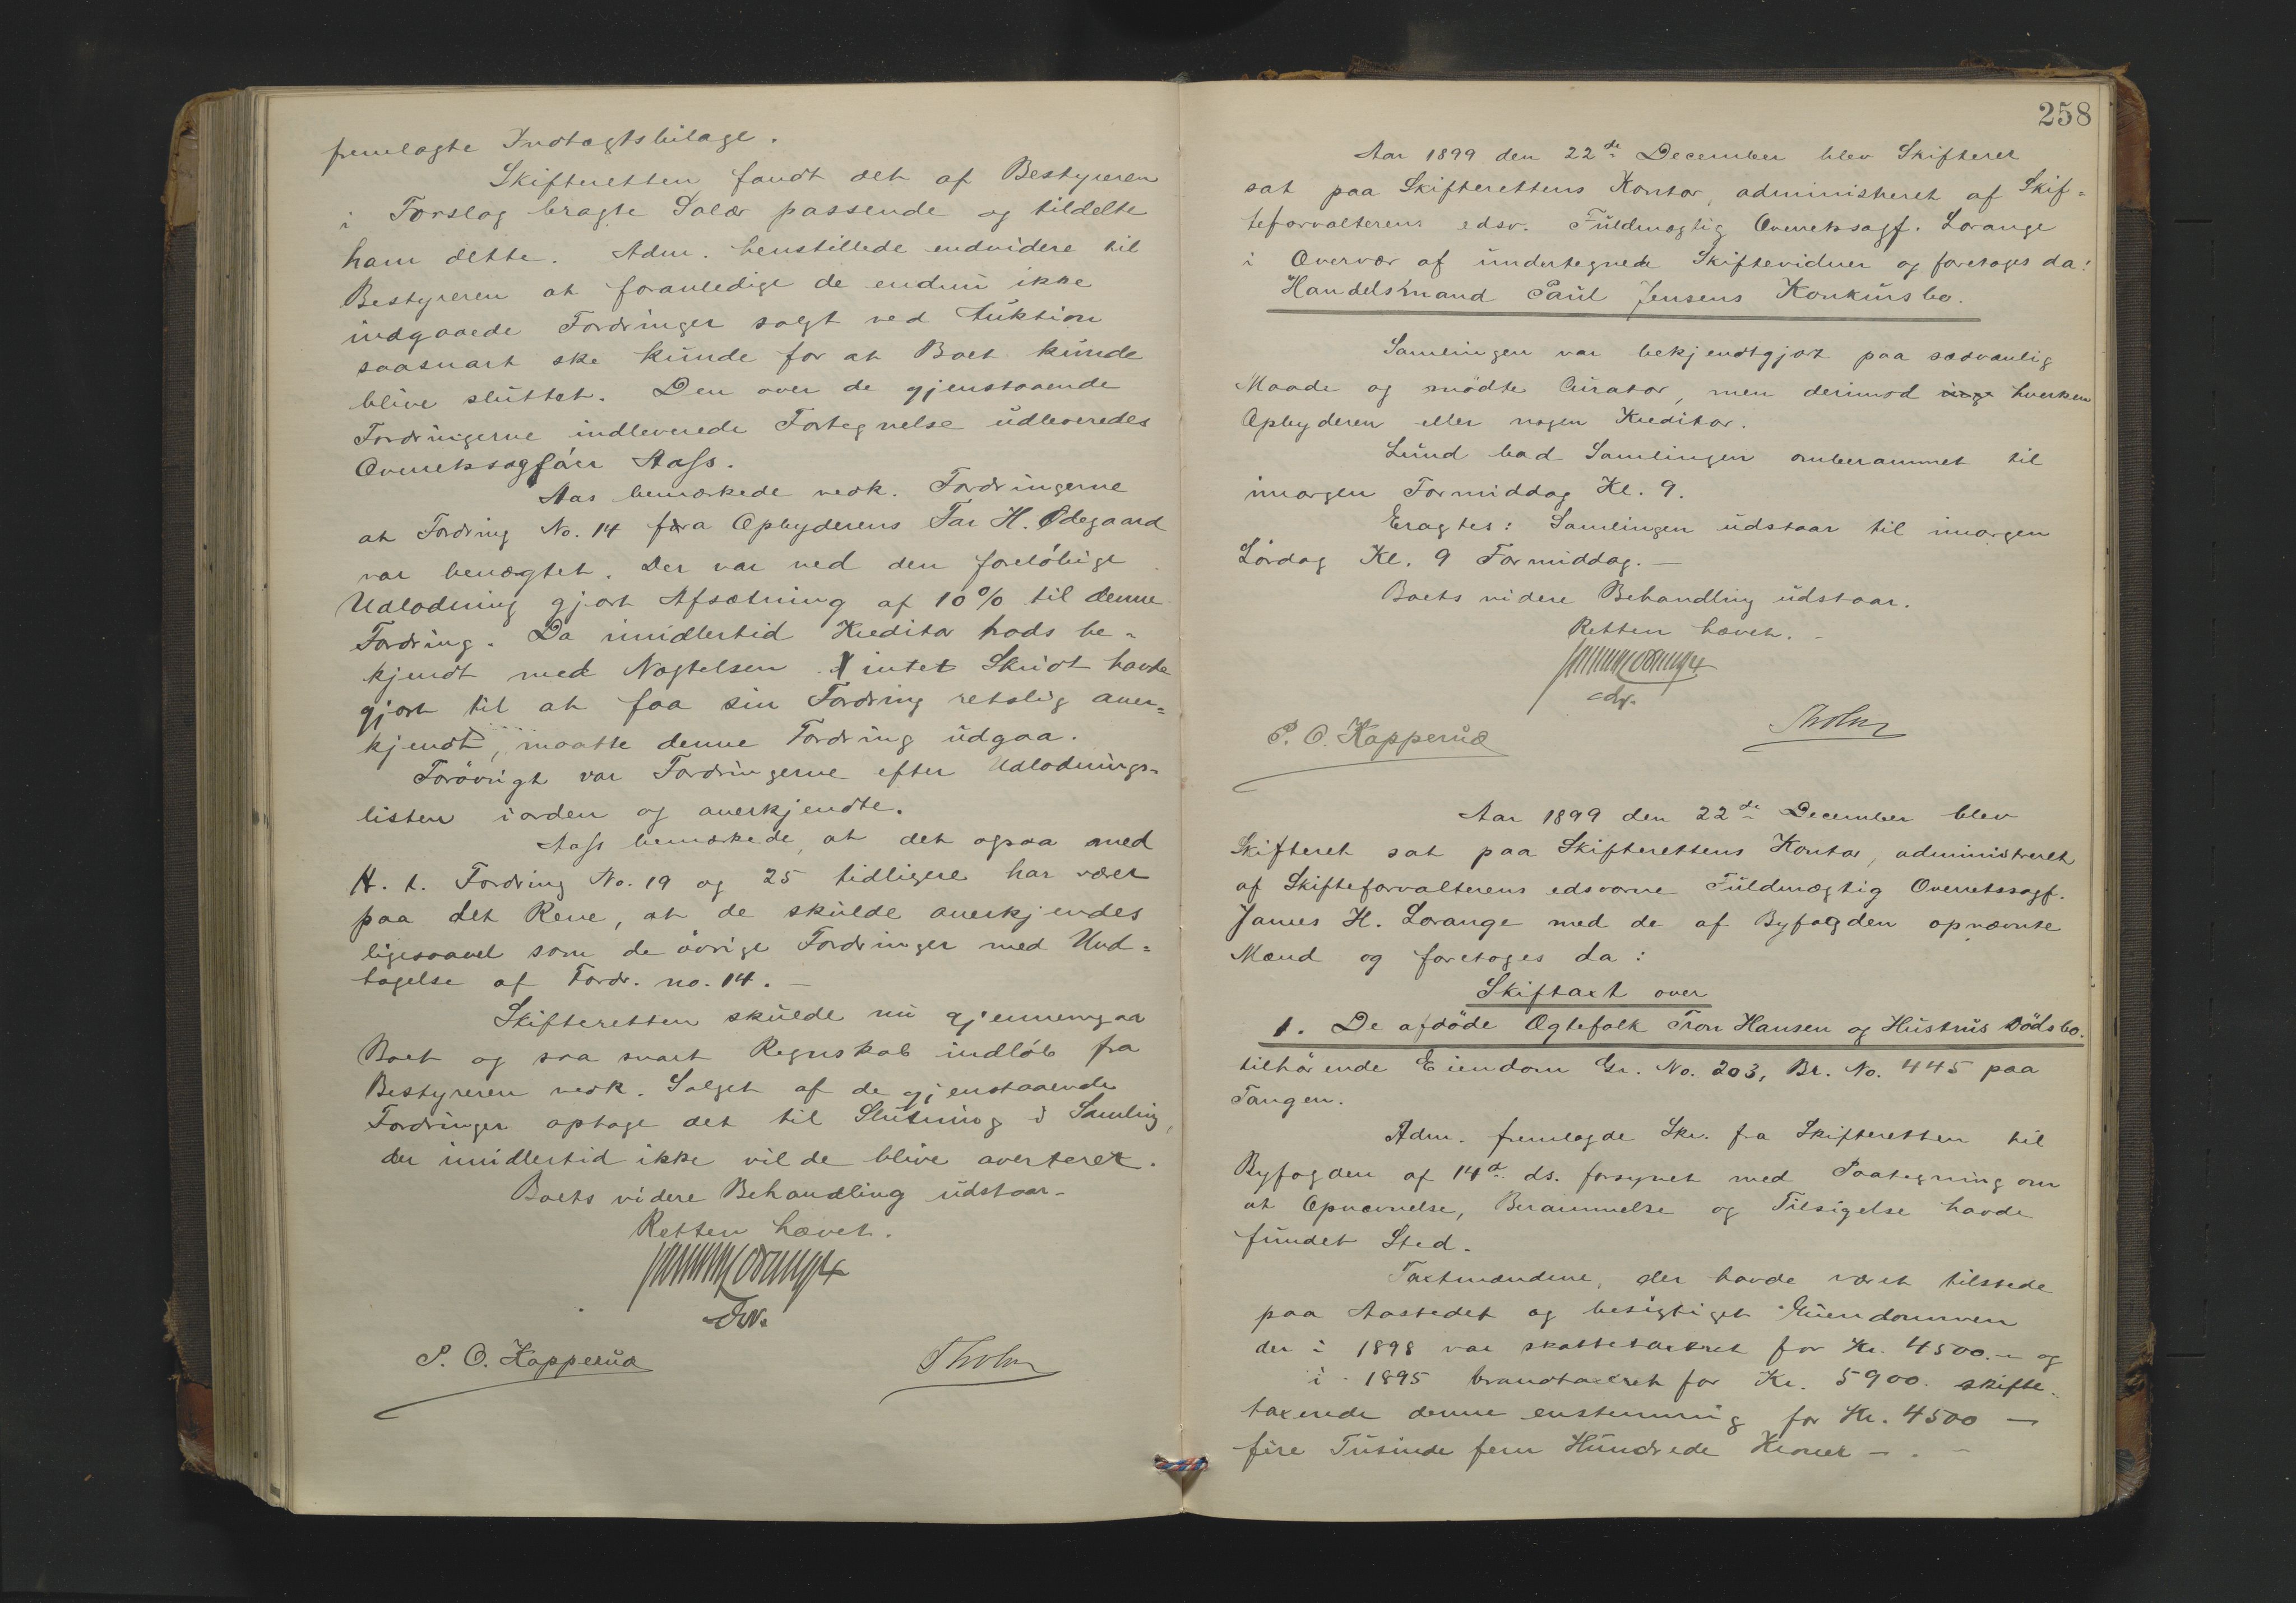 fremlagte Indtægtsbilage.
Skifteretten fandt det af Bestyreren
i Forslag bragte Salær passende og tildelte
ham dette. Adm. henstillede endvidere til
Bestyreren at foranledige de endnu ikke
indgaaede Fordringer solgt ved Auktion
saasnart ske kunde for at Boet kunde
blive sluttet. Den over de gjenstaaende
Fordringerne indleverede Fortegnelse udleveredes
Overretssagfører Aass.
Aas bemærkede vedk. Fordringerne
at Fordring No. 14 fra Opbyderens Far H. Ødegaard
var benægtet. Der var ved den foreløbige
Udlodning gjort Afsætning af 10% til denne
Fordring. Da imidlertid Kreditor trods be-
kjendt med Nægtelsen intet Skridt havde
gjort til at faa sin Fordring retslig aner=
kjendt, maatte denne Fordring udgaa.
Forøvrigt var Fordringerne efter Udlodnings=
listen iorden og anerkjendte.
Aass bemærkede, at det ogsaa med
H. t. Fordring No. 19 og 25 tidligere har været
paa det Rene, at de skulde anerkjendes
ligesaavel som de øvrige Fordringer med Und=
tagelse af Fordr. no. 14. -
Skifteretten skulde nu gjennemgaa
Boet og saa snart Regnskab indløb fra
Bestyreren vedk. Salget af de gjenstaaende
Fordringer optage det til Slutning i Samling,
der imidlertid ikke vilde blive averteret.
Boets videre Behandling udstaar-
Retten hævet.
P. O. Kopperud
Tholm
258
Aar 1899 den 22de December blev Skifteret
sat paa Skifterettens Kontor, administreret af Skif=
teforvalterens edsv. Fuldmægtig Overretssagf. Lorange
i Overvær af undertegnede Skiftevidner og foretoges da:
Handelsmand Paul Jensens Konkursbo.
Samlingen var bekjendtgjort paa sædvanlig
Maade og mødte Curator, men derimod inge hverken
Opbyderen eller nogen Kreditor.
Lund bad Samlingen omberammet til
imorgen Formiddag Kl. 9.
Eragtes: Samlingen udstaar til imorgen
Lørdag Kl. 9 Formiddag. -
Boets videre Behandling udstaar.
Retten hævet. -
P. O. Kopperud
Tholm
Aar 1899 den 22de December blev
Skifteret sat paa Skifterettens Kontor, administreret
af Skifteforvalterens edsvorne Fuldmægtig Overretssagf.
James H. Lorange med de af Byfogden opnævnte
Mænd og foretoges da:
Skiftaxt over
1. De afdøde Ægtefolk Tron Hansen og Hustrus Dødsbo.
tilhørende Eiendom Gr. No. 203, Br. No. 445 paa
Tangen.
Adm. fremlagde Skr. fra Skifteretten til
Byfogden af 14de ds. forsynet med Paategning om
at Opnævnelse, Berammelse og Tilsigelse havde
fundet Sted.
Taxtmændene, der havde været tilstede
paa Aastedet og besigtiget Eiendommen
der i 1898 var skattetaxeret for Kr. 4500.- og
i 1895 brandtaxeret for Kr. 5900. skifte-
taxerede denne enstemmig for Kr. 4500 -
fire Tusinde fem Hundrede Kroner -. -